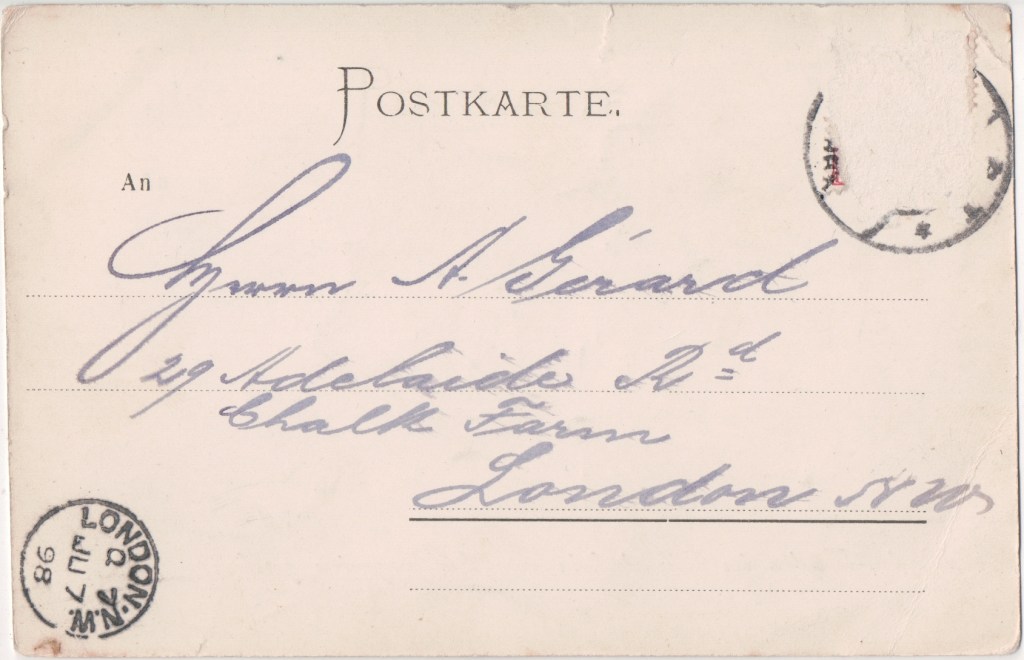 POSTKARTE.
An
Herrn A. Gérard
29 Adelaide Rd
Chalk Farm
London NW
LONDON.N.W.
JU 7
98